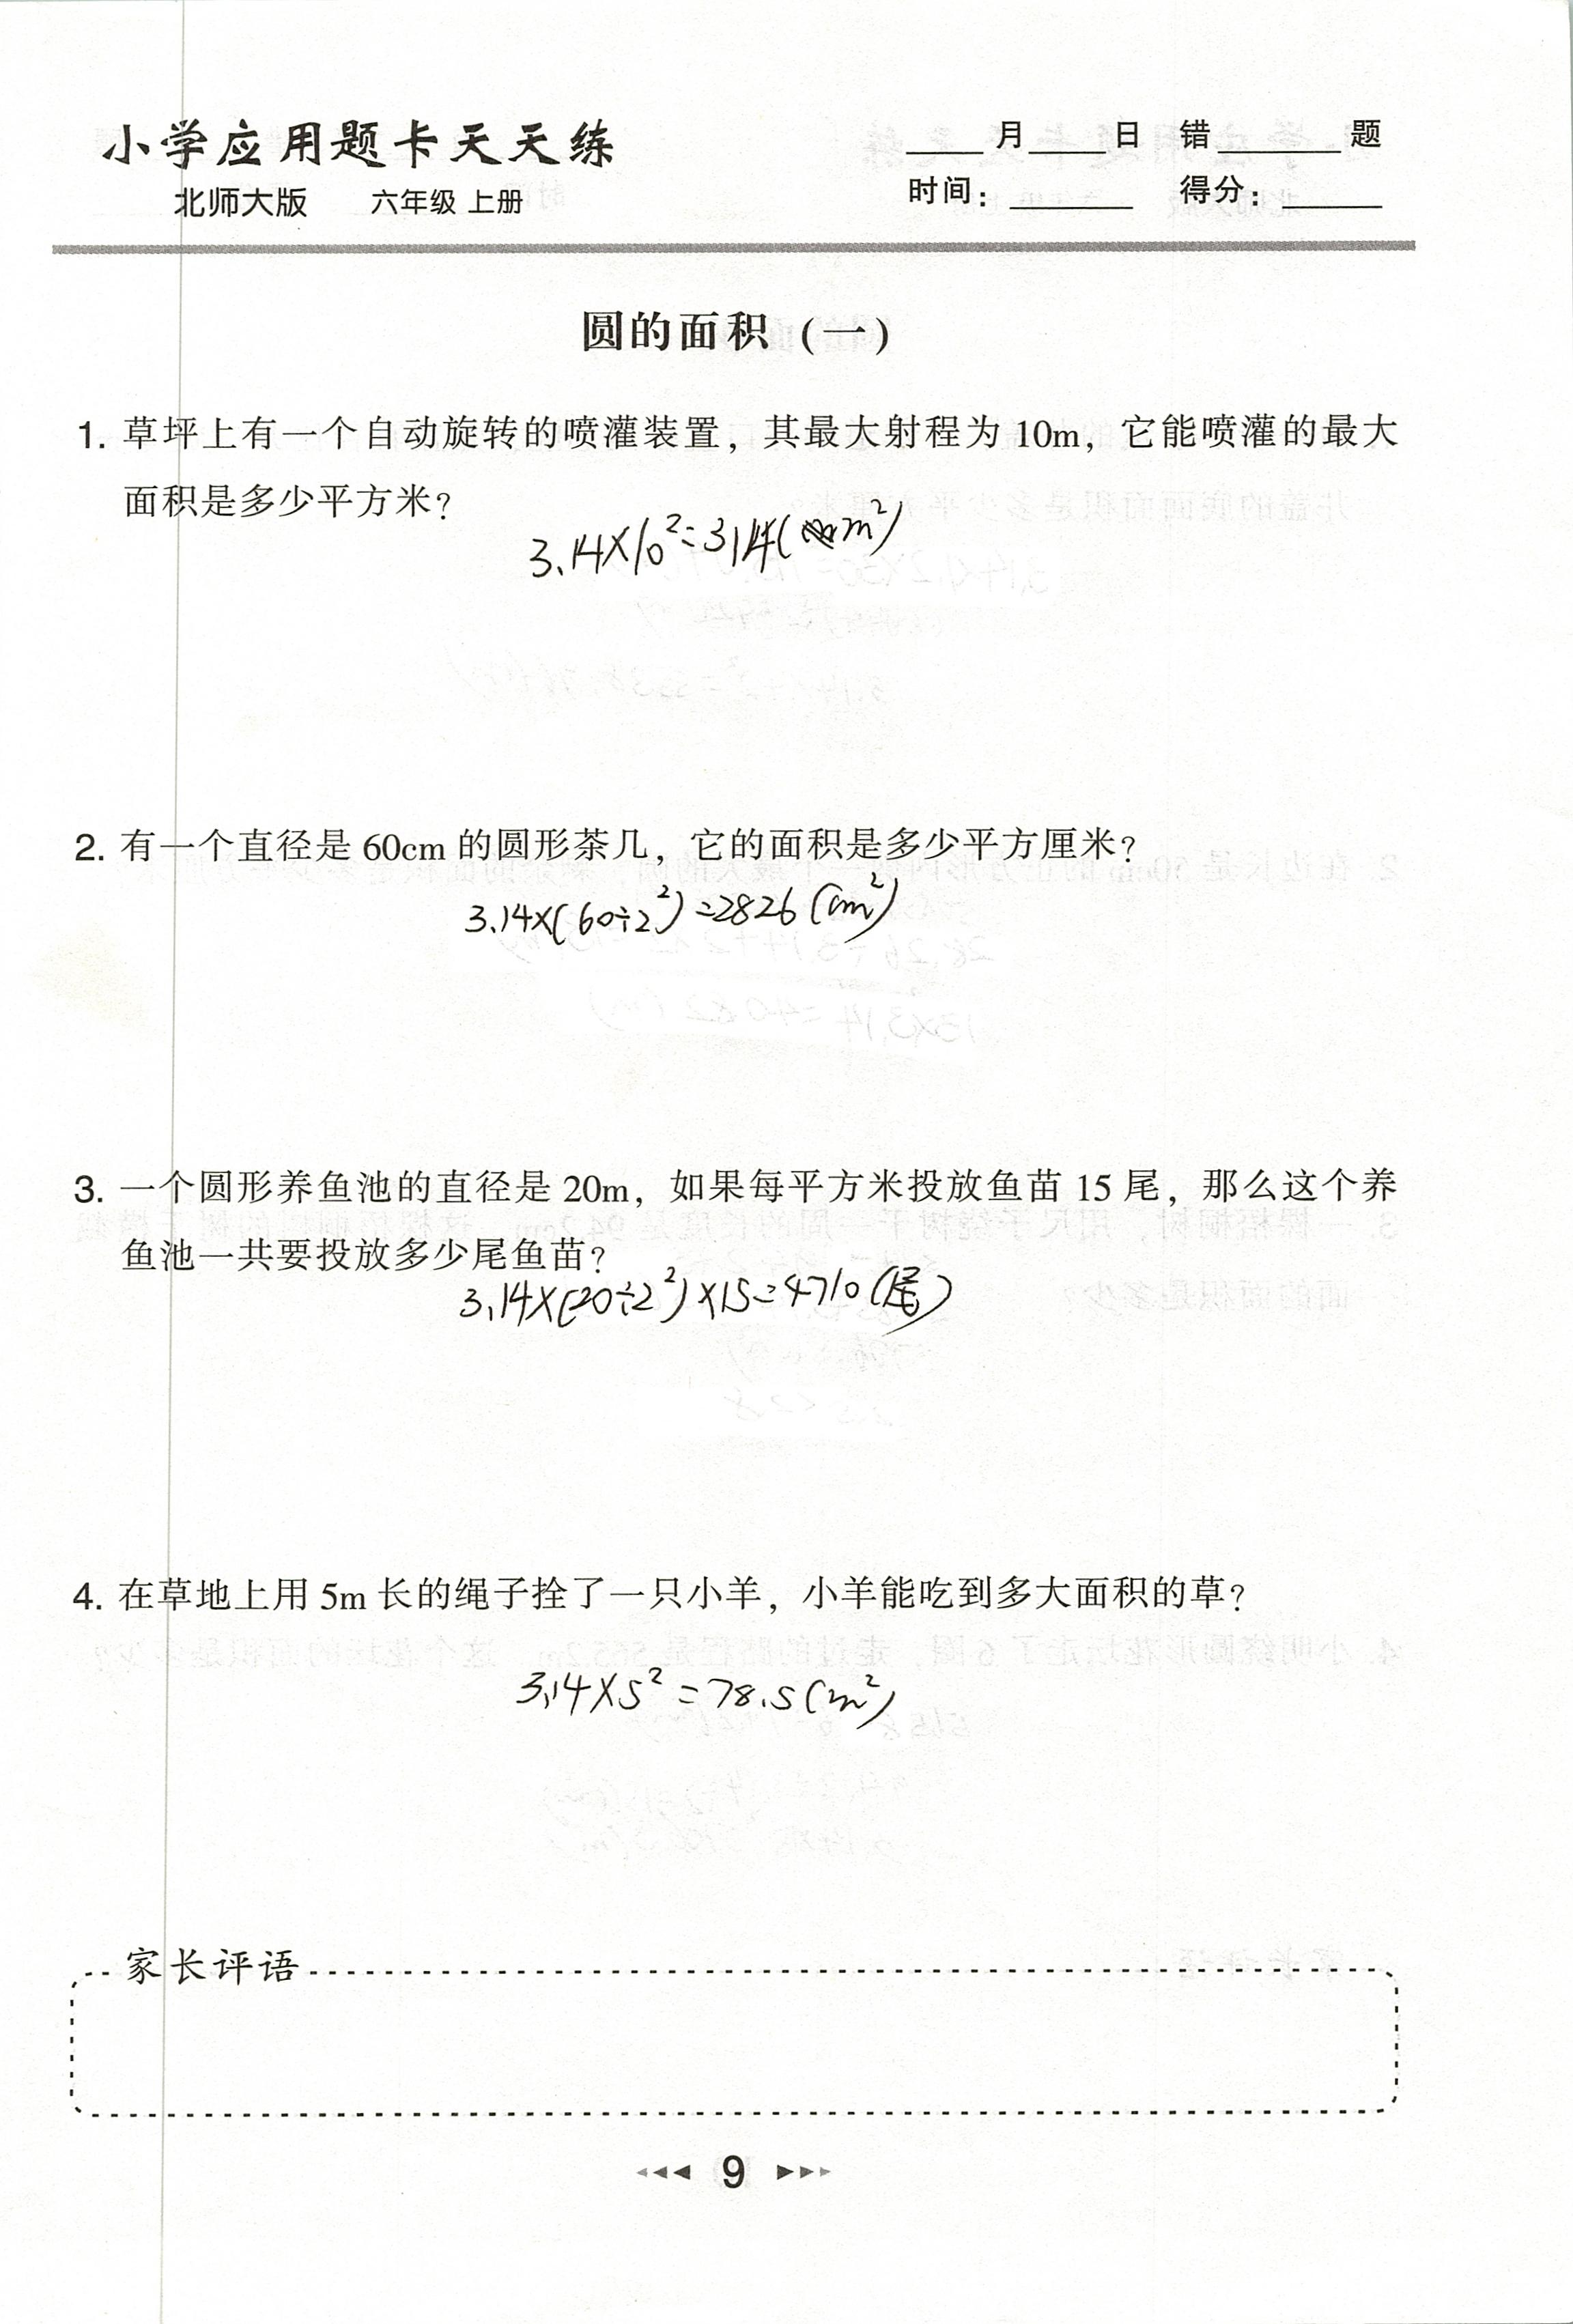 小学应用题卡天天练
北师大版 六年级 上册
____月____日 错______题
时间：______ 得分：_____
圆的面积（一）
1. 草坪上有一个自动旋转的喷灌装置，其最大射程为 10m，它能喷灌的最大
面积是多少平方米？
3.14×10²=314(m²)
2. 有一个直径是 60cm 的圆形茶几，它的面积是多少平方厘米？
3.14×(60÷2²)=2826(cm²)
3. 一个圆形养鱼池的直径是 20m，如果每平方米投放鱼苗 15 尾，那么这个养
鱼池一共要投放多少尾鱼苗？
3.14×(20÷2²)×15=4710(尾)
4. 在草地上用 5m 长的绳子拴了一只小羊，小羊能吃到多大面积的草？
3.14×5²=78.5(m²)
家长评语
9